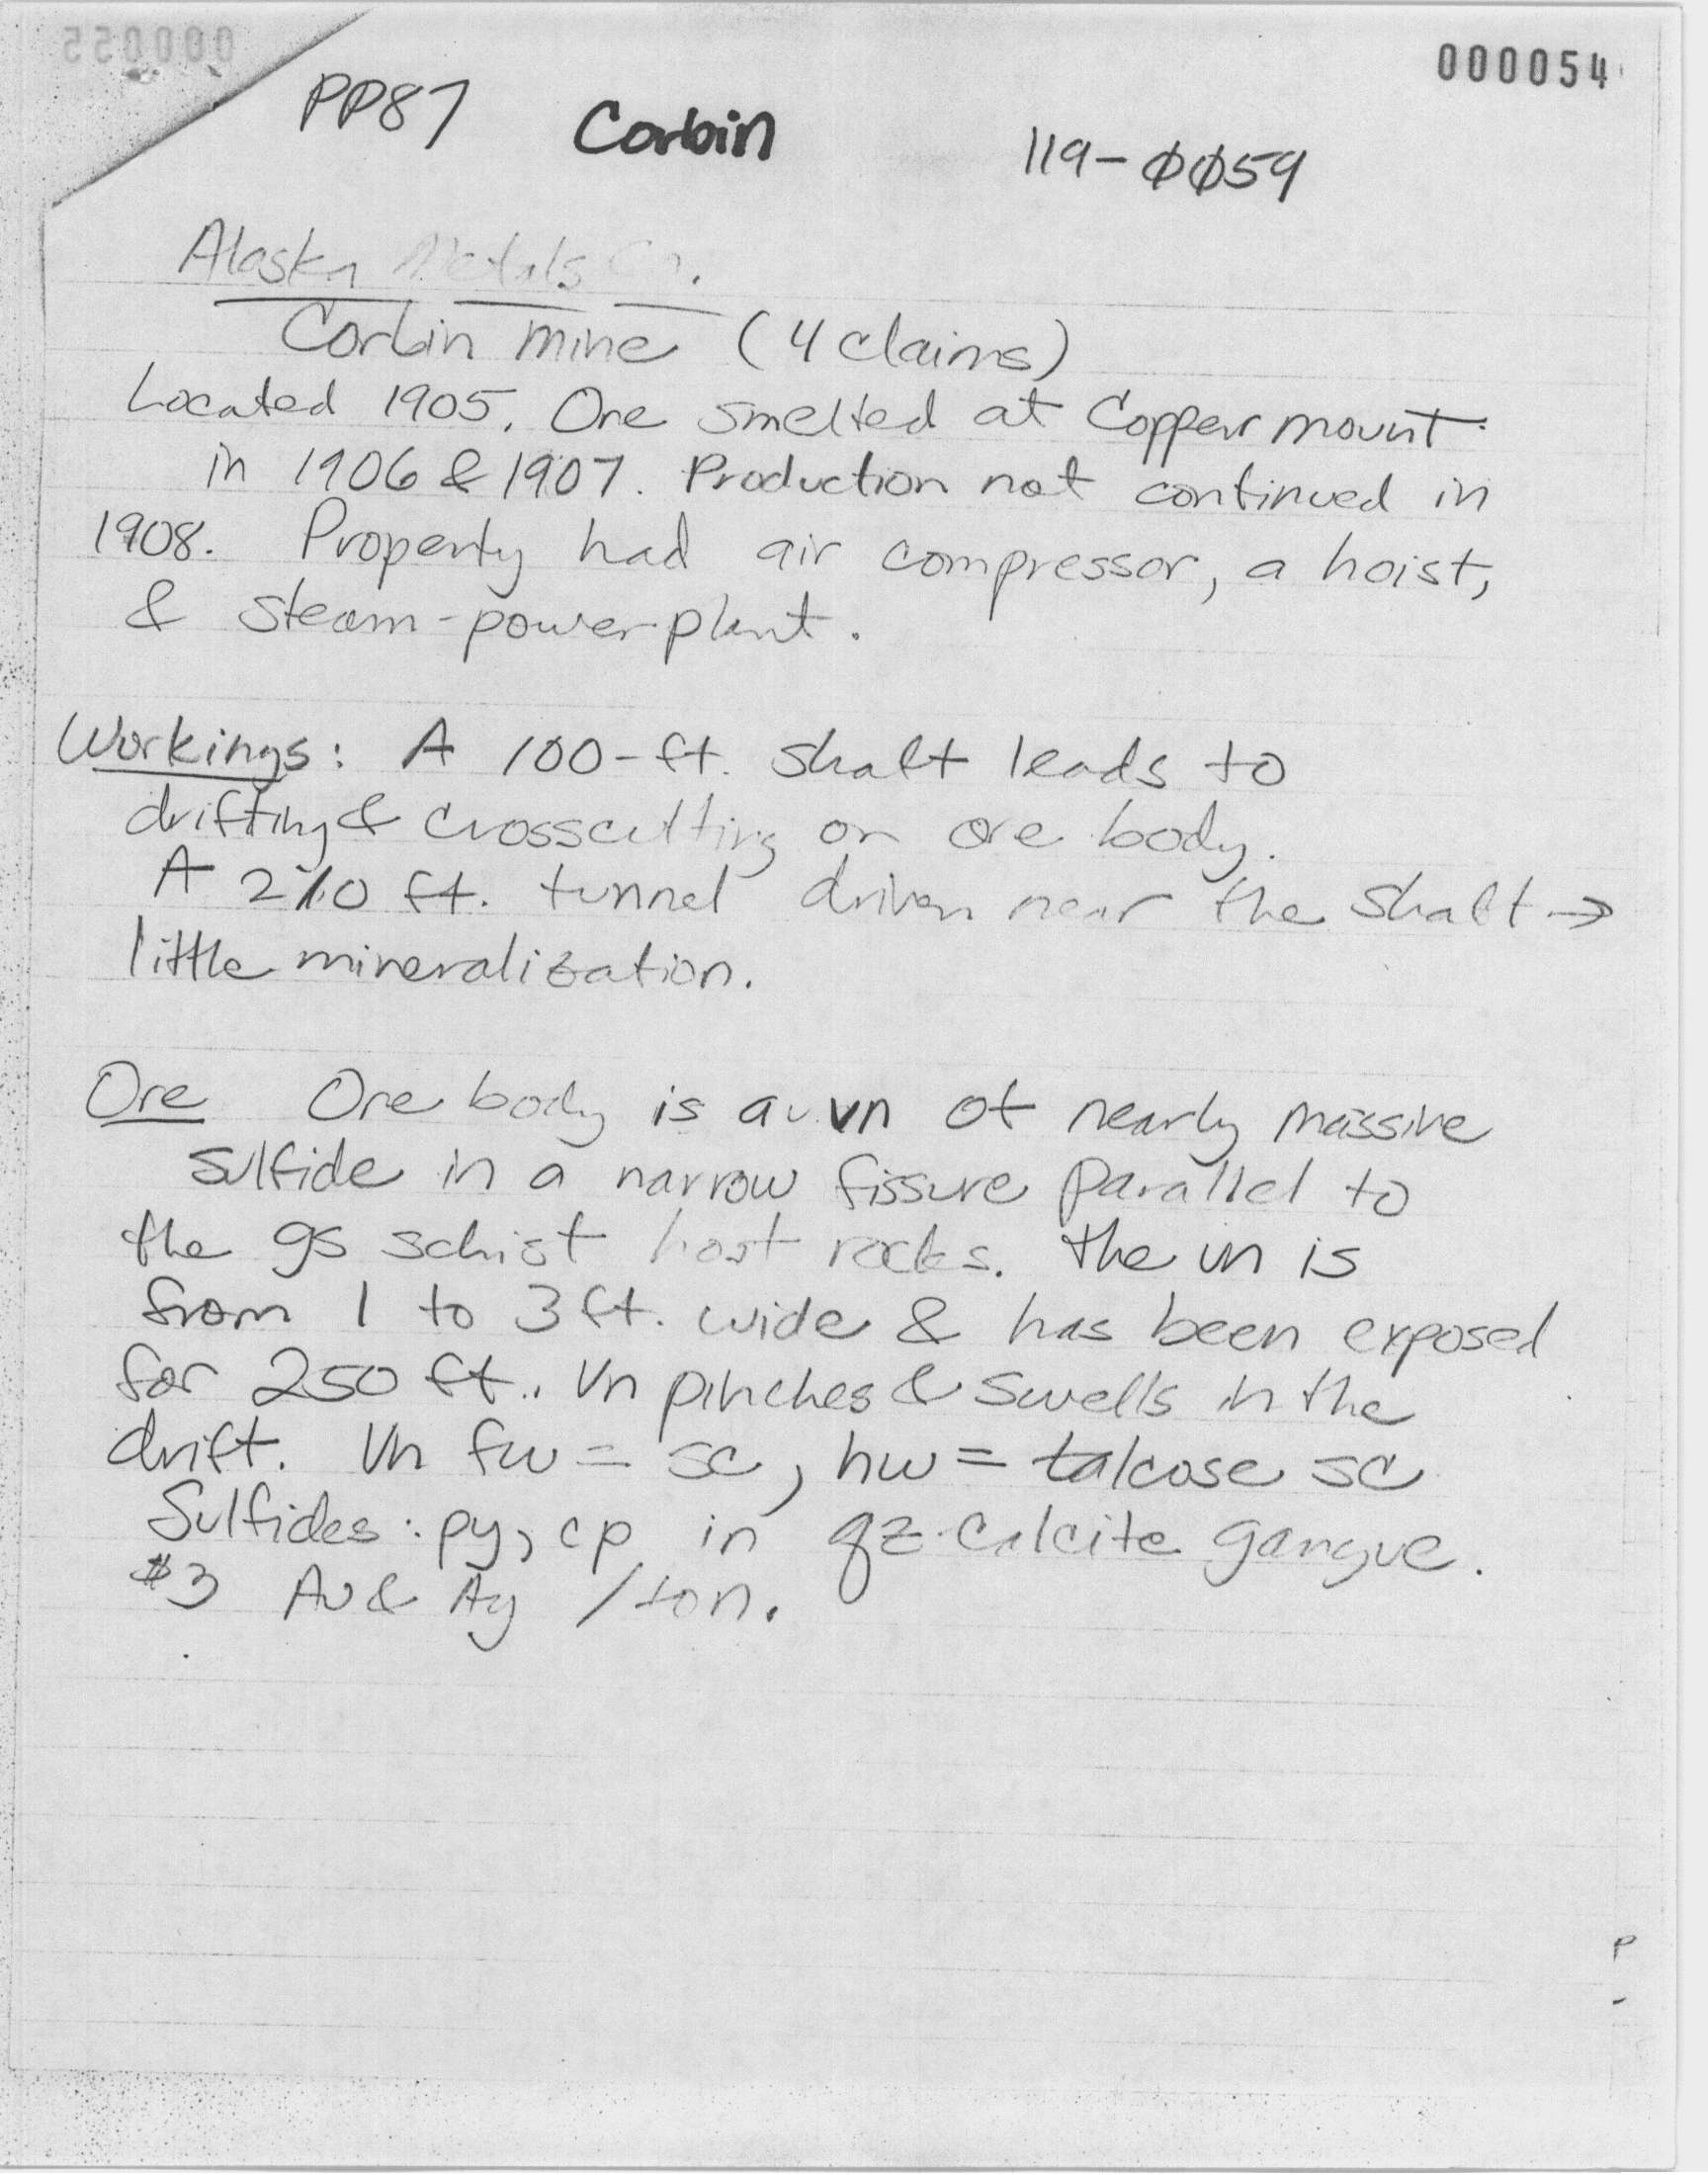 000055
000054
PP87 Corbin 119-0059
Alaska Metals Co.
Corbin mine (4 claims)
Located 1905. Ore smelted at Copper mount.
in 1906 & 1907. Production not continued in
1908. Property had air compressor, a hoist,
& steam-power plant.
Workings: A 100-ft. shaft leads to
drifting & crosscutting on ore body.
A ft. tunnel driven near the shaft →
little mineralization.
Ore Ore body is a vn of nearly massive
sulfide in a narrow fissure parallel to
the gs schist host rocks. The vn is
from 1 to 3 ft. wide & has been exposed
for 250 ft.. Vn pinches & swells in the
drift. Vn fw = sc, hw = talcose sc
Sulfides: py, cp in qz-calcite gangue.
$3 Au & Ag /ton.
P